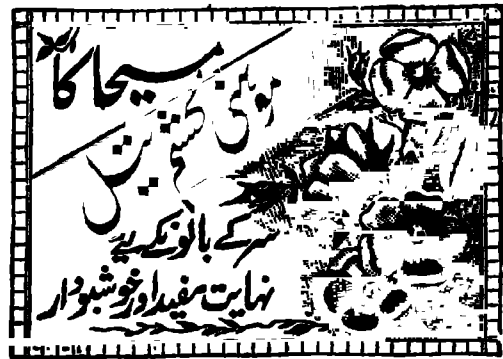 مسیحا کا
روغنی گشنیز تیل
سر کے بالوں کے لیے
نہایت مفید اور خوشبودار